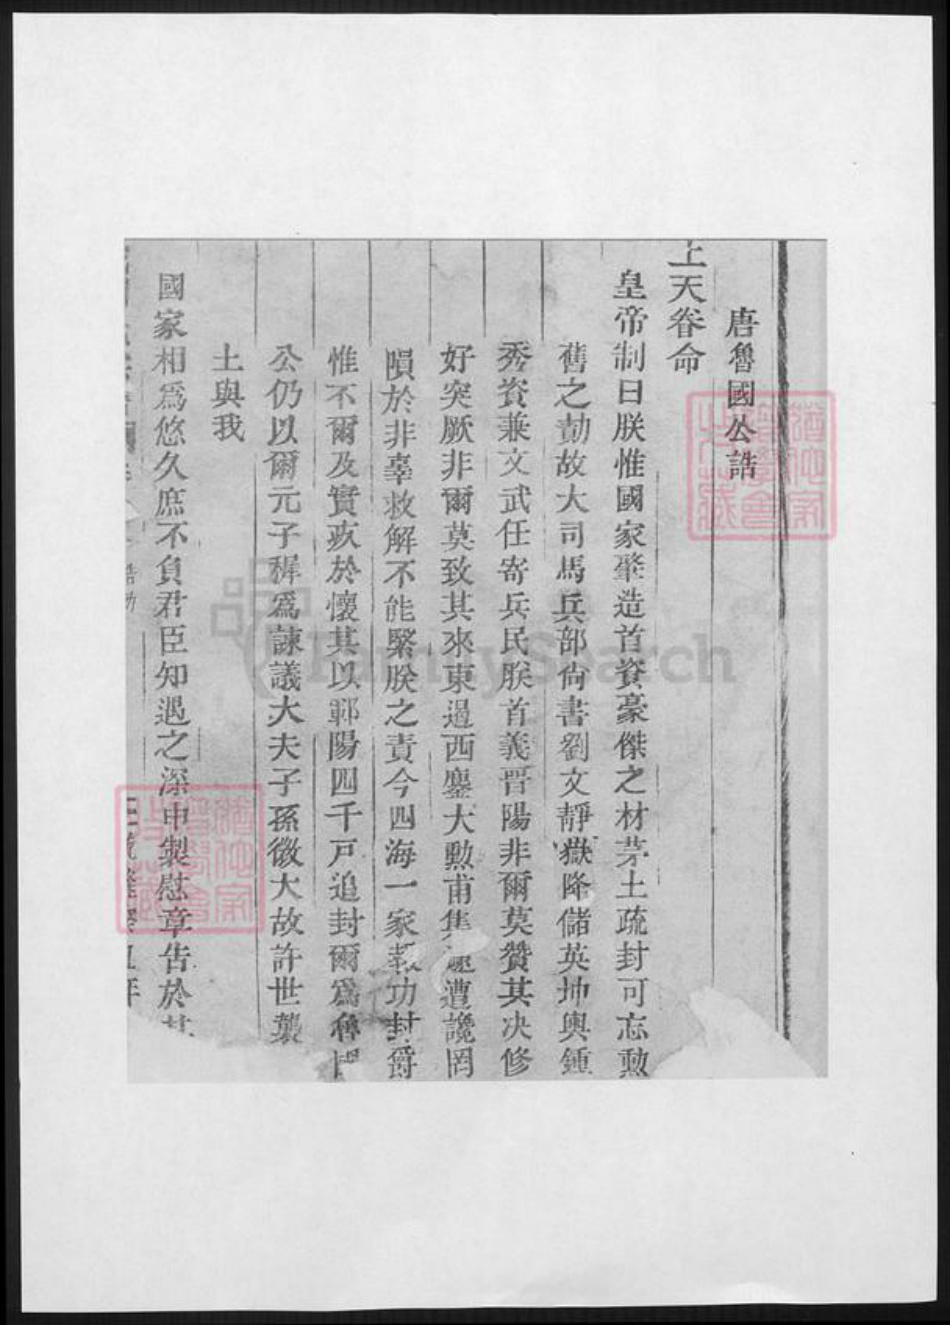 唐魯國公誥
上天眷命
皇帝制曰朕惟國家肇造首資豪傑之材茅土疏封可忘勲
舊之勣故大司馬兵部尙書劉文靜嶽降儲英坤輿鍾
秀資兼文武任寄兵民朕首義晋陽非爾莫贊其决修
好突厥非爾莫致其來東過西鏖大勲甫集遭讒罔
隕於非辜救解不能緊朕之責今四海一家報功封爵
惟不爾及實疚於懷其以鄿陽四千戸追封爾爲魯
公仍以爾元子樨爲諫議大夫子孫徵大故許世襲
土與我
國家相爲悠久庶不負君臣知遇之深申製慰章告於
FamilySearch